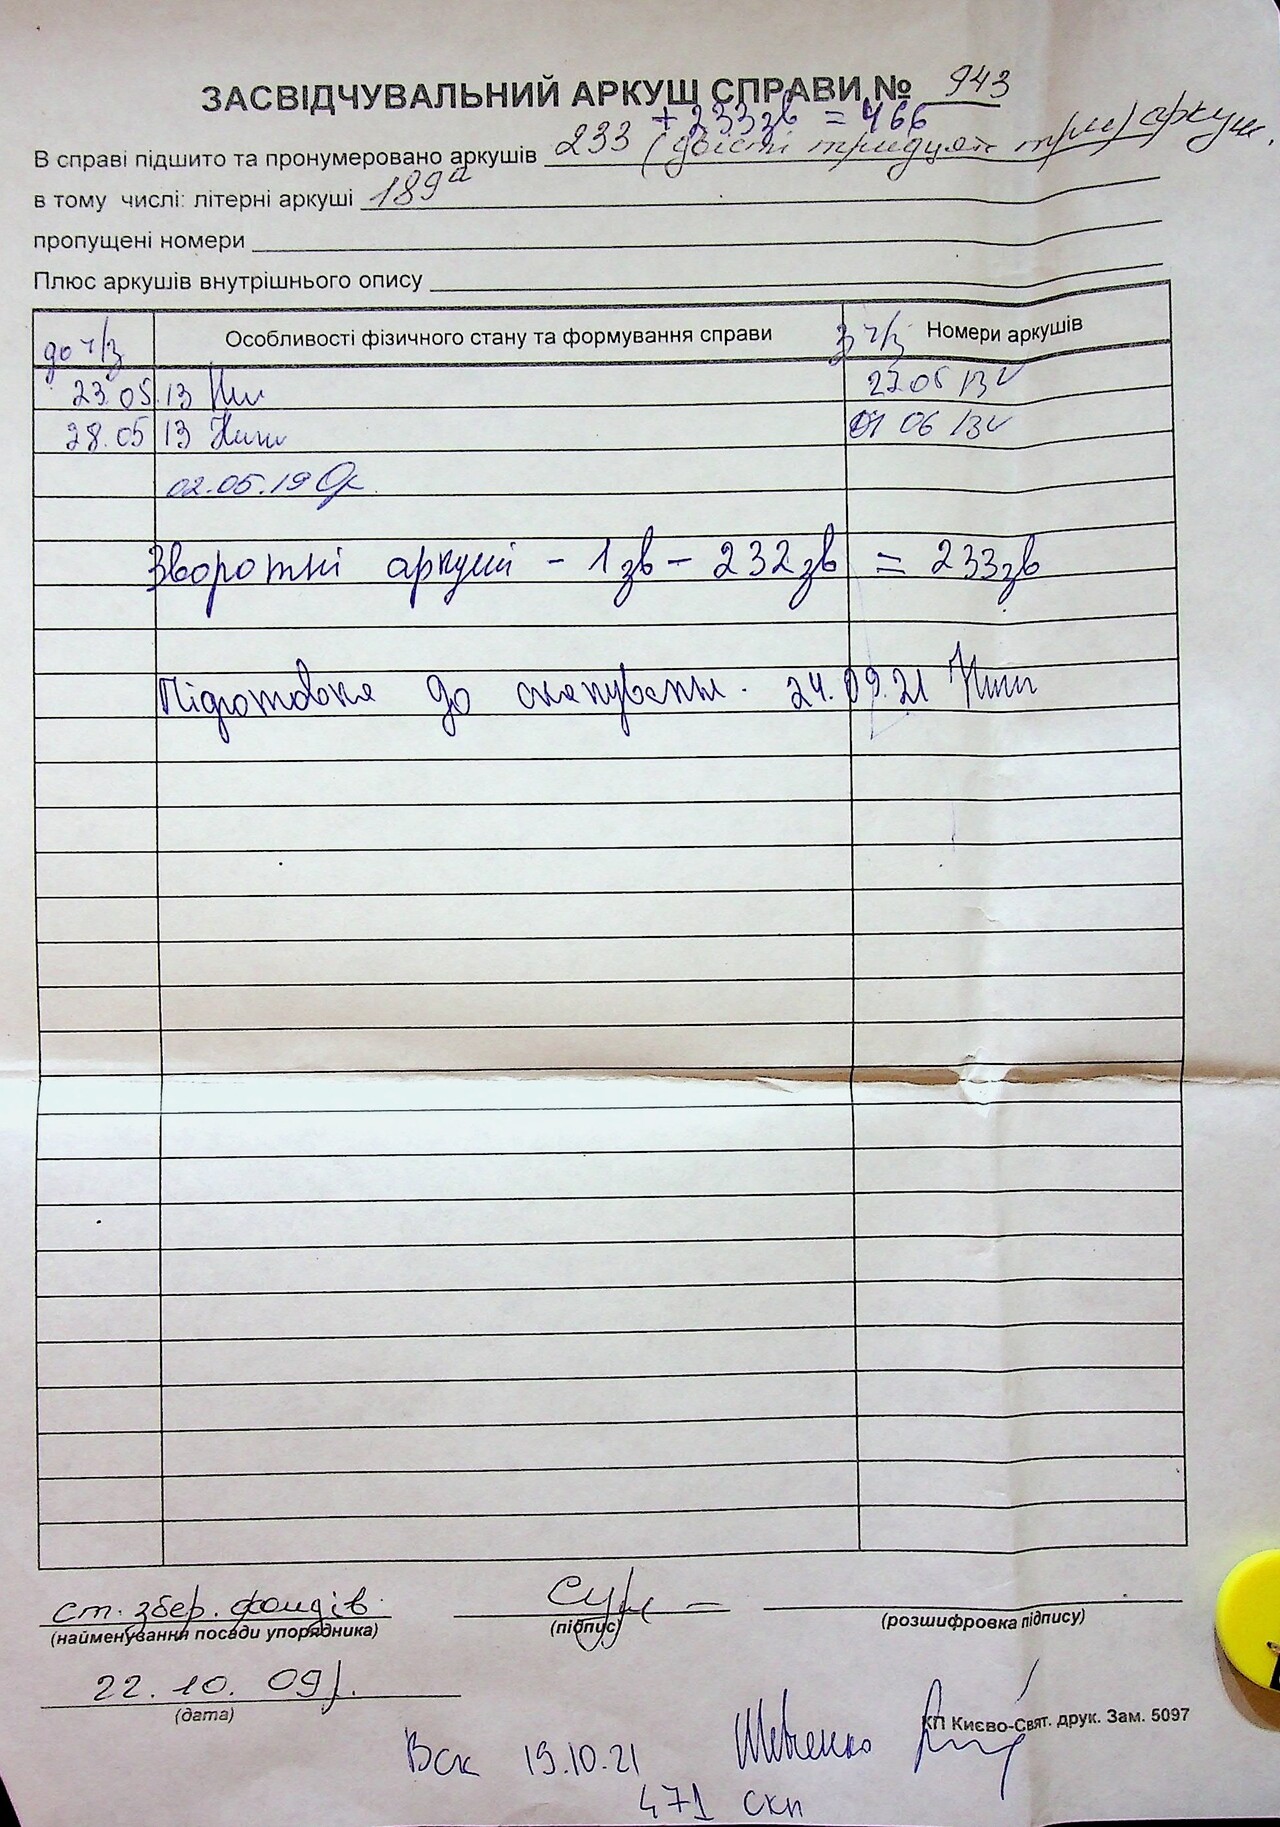 ЗАСВІДЧУВАЛЬНИЙ АРКУШ СПРАВИ № 943
+ 233 зв = 466
В справі підшито та пронумеровано аркушів 233 (двісті тридцять три) аркуш.
в тому числі: літерні аркуші 189а
пропущені номери
Плюс аркушів внутрішнього опису
до ч/з Особливості фізичного стану та формування справи з ч/з Номери аркушів
23.05 13 27 05 13
28.05 13 01 06 13
02.05.19
Зворотні аркуші - 1 зв - 232 зв = 233 зв
Підготовка до сканування. 24.09.21
ст. збер. фондів
(найменування посади упорядника) (підпис) (розшифровка підпису)
22. 10. 09р.
(дата)
КП Києво-Свят. друк. Зам. 5097
Вск 19.10.21 Шевченко
471 скн